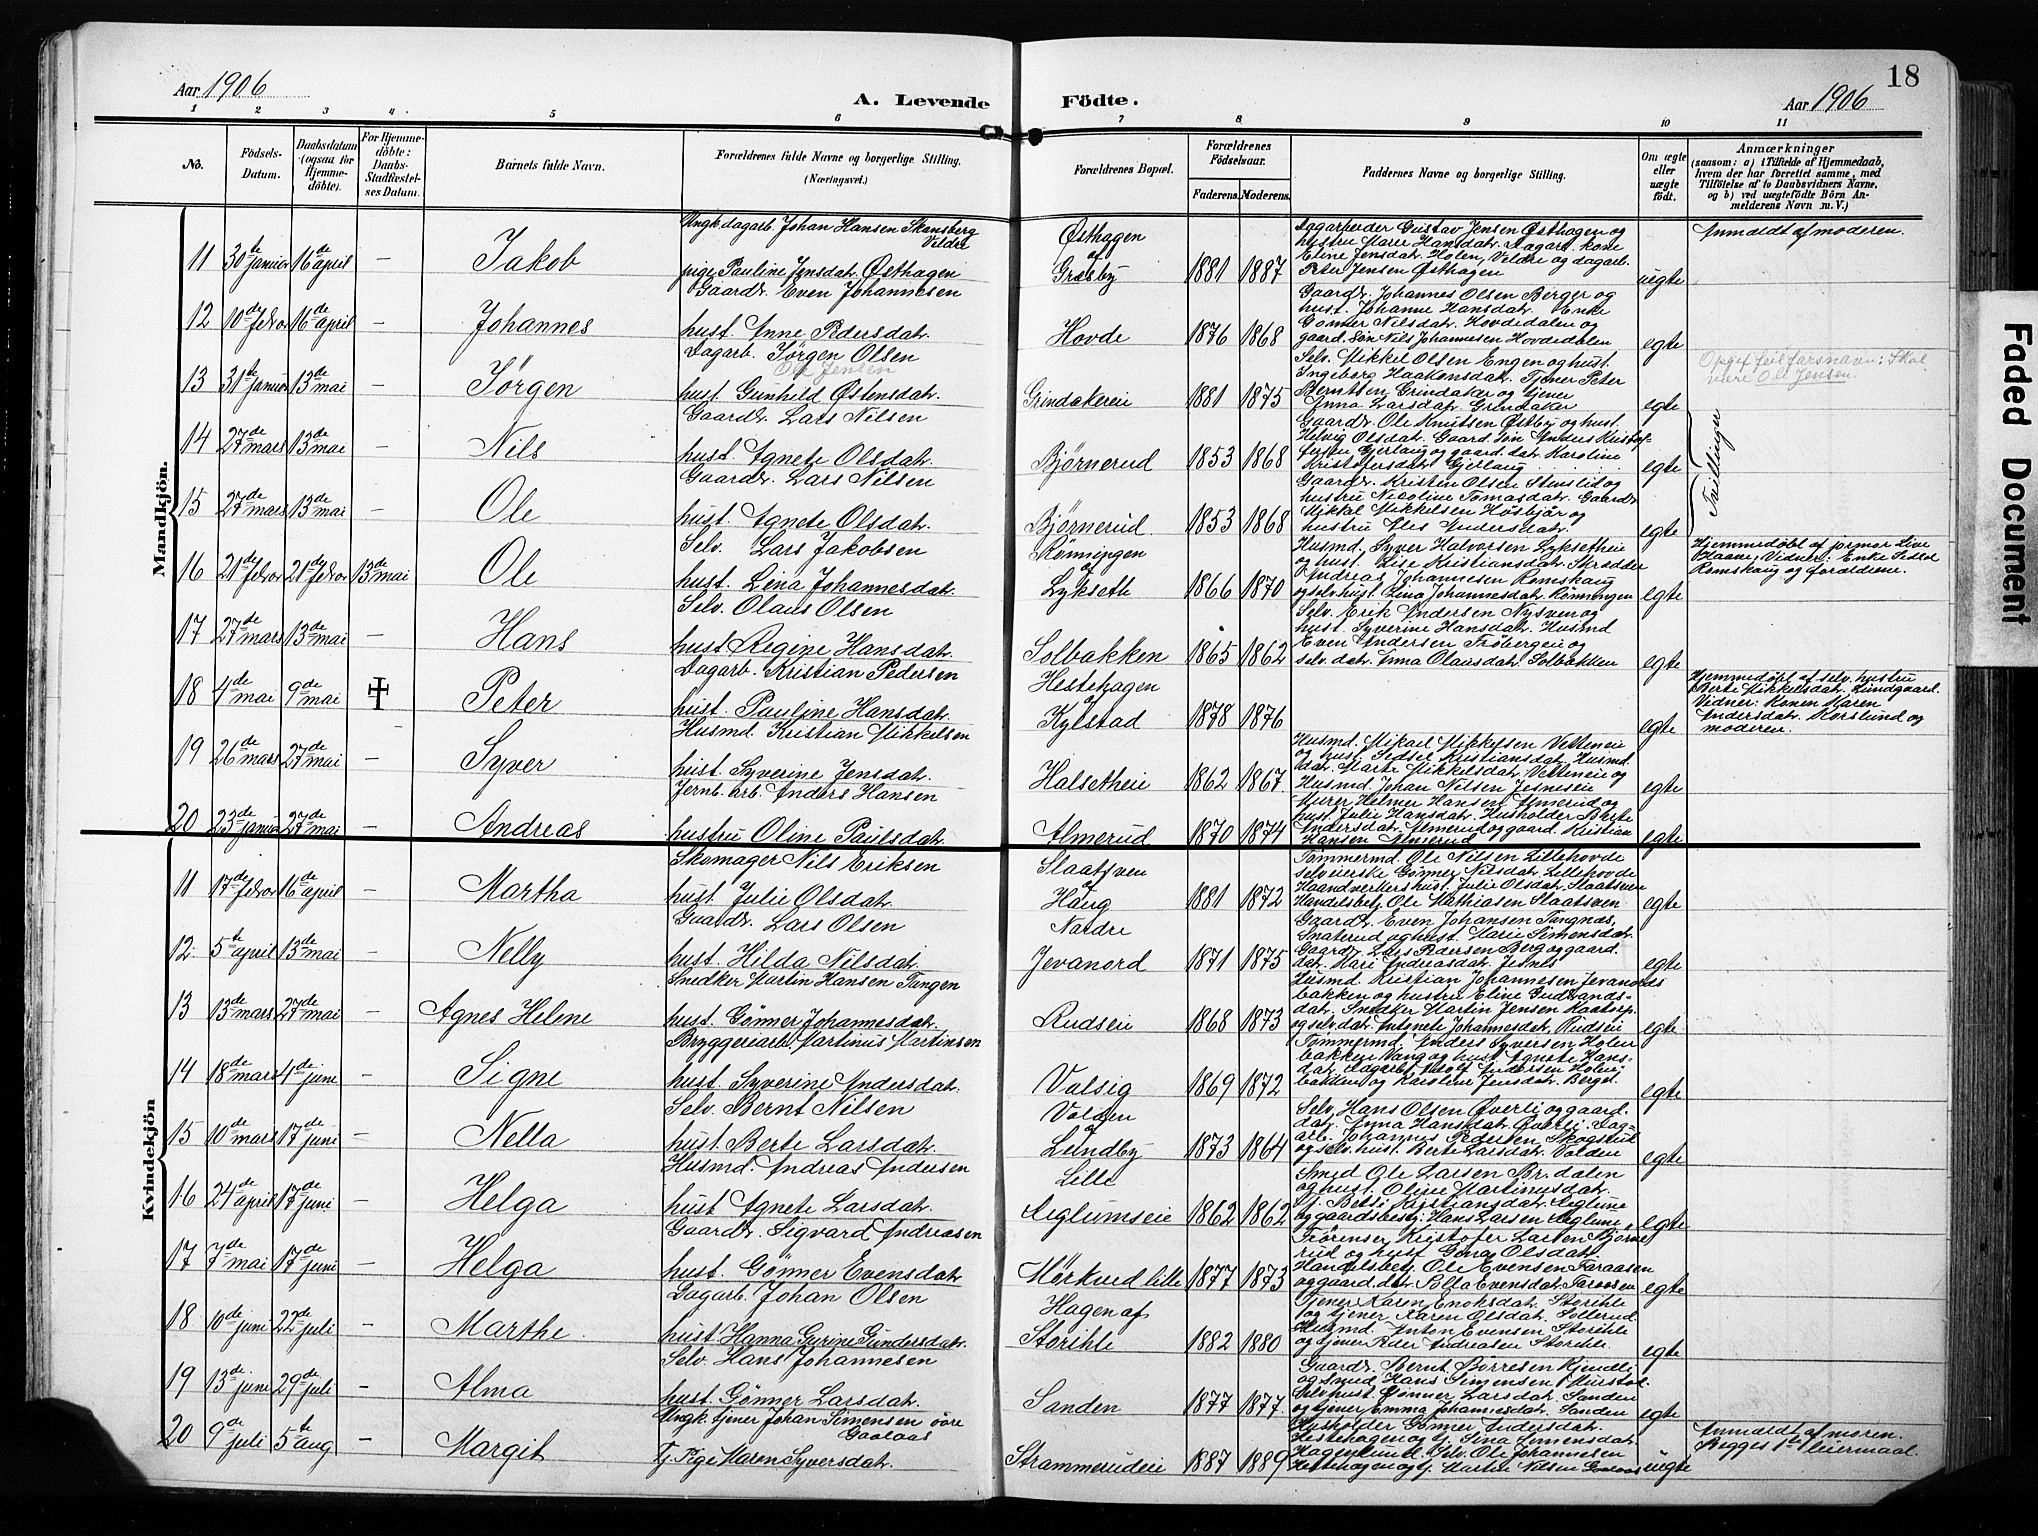 Aar 1906
A. Levende Födte.
Aar 1906
18
1 2 3 4. 5 6 7 8 9 10 11
No.
Födsels-Datum.
Daabsdatum (ogsaa for Hjemme-döbte).
For Hjemme-döbte: Daabs-Stadfæstel-ses Datum.
Barnets fulde Navn.
Forældrenes fulde Navne og borgerlige Stilling. (Næringsvei.)
Forældrenes Bopæl.
Forældrenes Födselsaar.
Faderens. Moderens.
Faddernes Navne og borgerlige Stilling.
Om ægte eller uægte födt.
Anmærkninger
(saasom: a) i Tilfælde af Hjemmedaab, hvem der har forrettet samme, med Tilföielse af to Daabsvidners Navne, og b) ved uægtefödte Börn Anmelderens Navn m. V.)
Mandkjön.
11 30te januar 16de april - Jakob
Ungk. dagarb. Johan Hansen Skansberg Veldre
pige Pauline Jensdatr. Østhagen
Østhagen af Græsby 1881 1887
Dagarbeider Gustav Jensen Østhagen og
hustru Marie Hansdatr. Dagarb. kone
Eline Jensdatr. Holen, Veldre og dagarb.
Peter Jensen Østhagen
uegte
Anmeldt af moderen.
12 10de febr 16de april - Johannes
Gaardr. Even Johannesen
hust. Anne Pedersdatr.
Hovde 1876 1868
Gaardr. Johannes Olsen Berger og
hust. Johanne Hansdatr. Enke
Gønner Nilsdatr. Hovdedalen og
gaard. søn Nils Johannesen Hovdedalen
egte
13 31te januar 13de mai - Jørgen
Dagarb. Jørgen Olsen
Ole Jensen
hust. Gunhild Østensdatr.
Grindakereie 1881 1875
Selv. Mikkel Olsen Engen og hust.
Ingeborg Haakensdatr. Tjener Peter
Berntsen Grindaker og tjener
Anna Larsdatr. Grindaker
egte
Opgif feil farsnavn: Skal
være Ole Jensen.
14 27de mars 13de mai - Nils
Gaardr. Lars Nilsen
hust. Agnete Olsdatr.
Bjørnerud 1853 1868
Gaardr. Ole Knutsen Østby og hust.
Helvig Olsdatr. Gaard. søn Anders Kristof-
fersen Gjerlaug og gaard. datr. Karoline
Kristofersdatr. Gjerlaug
egte
Tvillinger
15 27de mars 13de mai - Ole
Gaardr. Lars Nilsen
hust. Agnete Olsdatr.
Bjørnerud 1853 1868
Gaardr. Kristen Olsen Stenslid og
hustru Nicoline Tomasdatr. Gaardr.
Mikal Mikkelsen Høsbjør og
hustru Andersdatr.
egte
16 21de febr 21de febr 13de mai Ole
Selv. Lars Jakobsen
hust. Lina Johannesdatr.
Rønningen af Lykseth 1866 1870
Husmd. Syver Halvorsen Lyksetheie
og hust. Lise Kristiansdatr. Skrædder
Andreas Johannesen Romskaug
og selv. hust. Lina Johannesdatr. Rønningen
egte
Hjemmedøbt af jormor Live
Haave, Vidner: Enke Sidsel
Romskaug og forældrene.
17 27de mars 13de mai - Hans
Selv. Olaus Olsen
hust Regine Hansdatr.
Solbakken 1865 1862
Selv. Erik Andersen Nysven og
hust. Syverine Hansdatr. Husmd
Even Andersen Frøbergeie og
selv. datr. Anna Olausdatr. Solbakken
egte
18 4de mai 9de mai Peter
Dagarb. Kristian Pedersen
hust. Pauline Hansdatr.
Hestehagen af Kylstad 1878 1876
egte
Hjemmedøbt af selv. hustru
Berte Mikkelsdatr. Lundgaard.
Vidner: Konen Karen
Andersdatr. Korslund og
moderen.
19 26de mars 27de mai - Syver
Husmd. Kristian Mikkelsen
hust. Syverine Jensdatr.
Halsetheie 1862 1867
Husmd. Mikael Mikkelsen Vetteneie
og hust. Sedsel Kristiansdatr. Husmd.
datr. Marte Mikkelsdatr. Vetteneie og
Husmd. Johan Nilsen Jesneseie
egte
20 23de januar 27de mai - Andreas
Jernb. arb. Anders Hansen
hustru Oline Paulsdatr.
Almerud 1870 1874
Murer Helmer Hansen Almerud og
hust. Julie Hansdatr. Husholder Berte
Andersdatr. Almerud og gaard. Kristian
Hansen Almerud
egte
Kvindekjön
11 17de febr 16de april - Martha
Skomager Nils Eriksen
hust. Julie Olsdatr.
Slaatsven af Haug 1881 1872
Tømmermd. Ole Nilsen Lillehovde
selveierske Gønner Nilsdatr. Lillehovde
Haandverkers hust. Julie Olsdatr. Slaatsven
Handelsbetj. Ole Mathiasen Slaatsven
egte
12. 5te april 13de mai - Nelly
Gaardr. Lars Olsen
hust. Hilda Nilsdatr.
Nordre Jevanord 1871 1875
Gaardr. Even Johansen Tangnæs,
Snaterud og hust. Marie Simonsdatr.
Gaardr. Lars Pedersen Berg og gaard.
datr. Kari Andreasdatr. Jesnes
egte
13 13de mars 27de mai Agnes Helene
Snedker Martin Hansen Tangen
hust. Gønner Johannesdatr.
Rudseie 1868 1873
Husmd. Kristian Johannesen Jevanords
bakken og hustru Eline Gudbrands-
datr. Snedker Martin Jensen
og selv. datr. Antonete Johannesdatr. Rudseie
egte
14 18de mars 4de juni - Signe
Bryggeriarb. Martinus Martinsen
hust. Syverine Andersdatr.
Valsig 1869 1872
Tømmermd. Anders Syversen Holen
bakken Vang og hust. Agnete Hans-
datr. Dagarb. Adolf Andersen Holen
bakken og Karoline Jensdatr. Berget
egte
15 10de mars 17de juni - Nella
Selv. Bernt Nilsen
hust. Berte Larsdatr.
Volden af Lundby 1873 1864
Selv. Hans Olsen Øverli og gaard.
datr. Anna Hansdatr. Øverli. Dag-
arb. Johannes Pedersen Skogstad
og selv. hust. Berte Larsdatr. Volden
egte
16 24de april 17de juni - Helga
Husmd. Andreas Andersen
hust Agnete Larsdatr.
Lille Aeglumseie 1862 1862
Smed Ole Larsen Br. dalen
og hust. Oline Martinusdatr.
Tj. Betsi Kristiansdatr. Aeglum
og gaardsbest. Hans Larsen Aeglum.
egte
17 7de mai 17de juni - Helga
Gaardr. Sigvard Andreasen
hust. Gønner Evensdatr.
Mørkved lille 1877 1873
Forenser Kristofer Larsen Bjørne-
rud og hust. Gina Olsdatr.
Handelsbetj. Ole Evensen Faraasen
og gaard. datr. Evensdatr. Faraasen
egte
18 10de juni 22de juli - Marthe.
Dagarb. Johan Olsen
hust. Hanna Gurine Gundersdatr.
Hagen af Storihle 1882 1880
Tjener Karen Enoksdatr. Storihle
og tjener Karen Olsdatr. Sollerud
Husmd. Anton Evensen Storihle
og tjener Peder Andreasen Storihle.
egte
19 13de juni 29de juli - Alma
Selv. Hans Johannesen
hust. Gønner Larsdatr.
Sanden 1877 1877
Gaardr. Bernt Børresen Kjindli
og Smed Hans Simensen Murstad
Selv. hust. Gønner Larsdatr. Sanden
og tjener Emma Johannesdatr. Sanden
egte
20 9de juli 5te aug - Margit
Ungk. tjener Johan Simensen øvre Gaalaas
Tj. Pige Maren Syversdatr.
Strammerudeie 1887 1889
Husholder Gønner Andersdatr.
Hestehagen og tj. Gina Jensensdatr.
Selv. Ole Johannesen
Hestehagen og tj. Martin Nilsen Gaalaas
uegte
Anmeldt af moren.
Begges 1ste leiermaal.
Faded Document